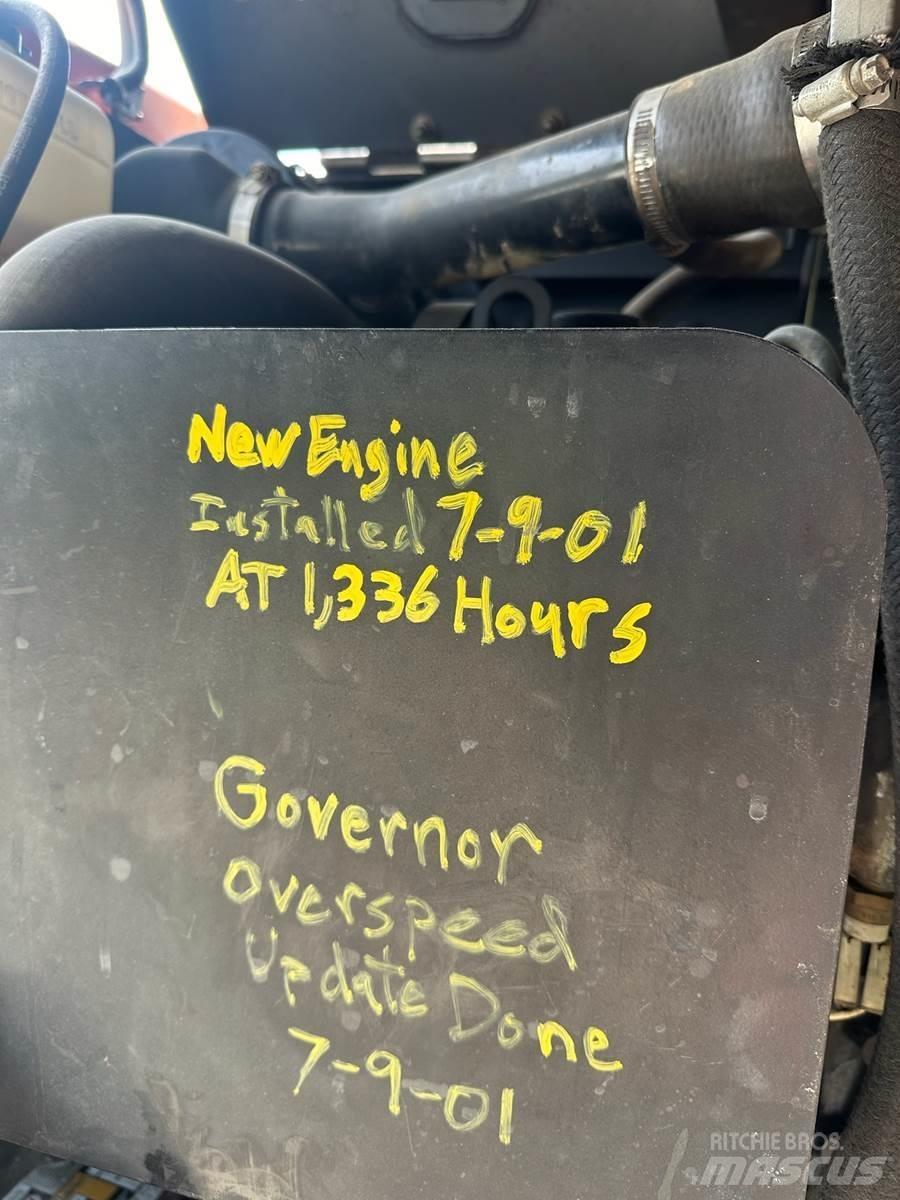 New Engine
Installed 7-9-01
AT 1,336 Hours
Governor
Overspeed
Update Done
7-9-01
RITCHIE BROS.
MASCUS